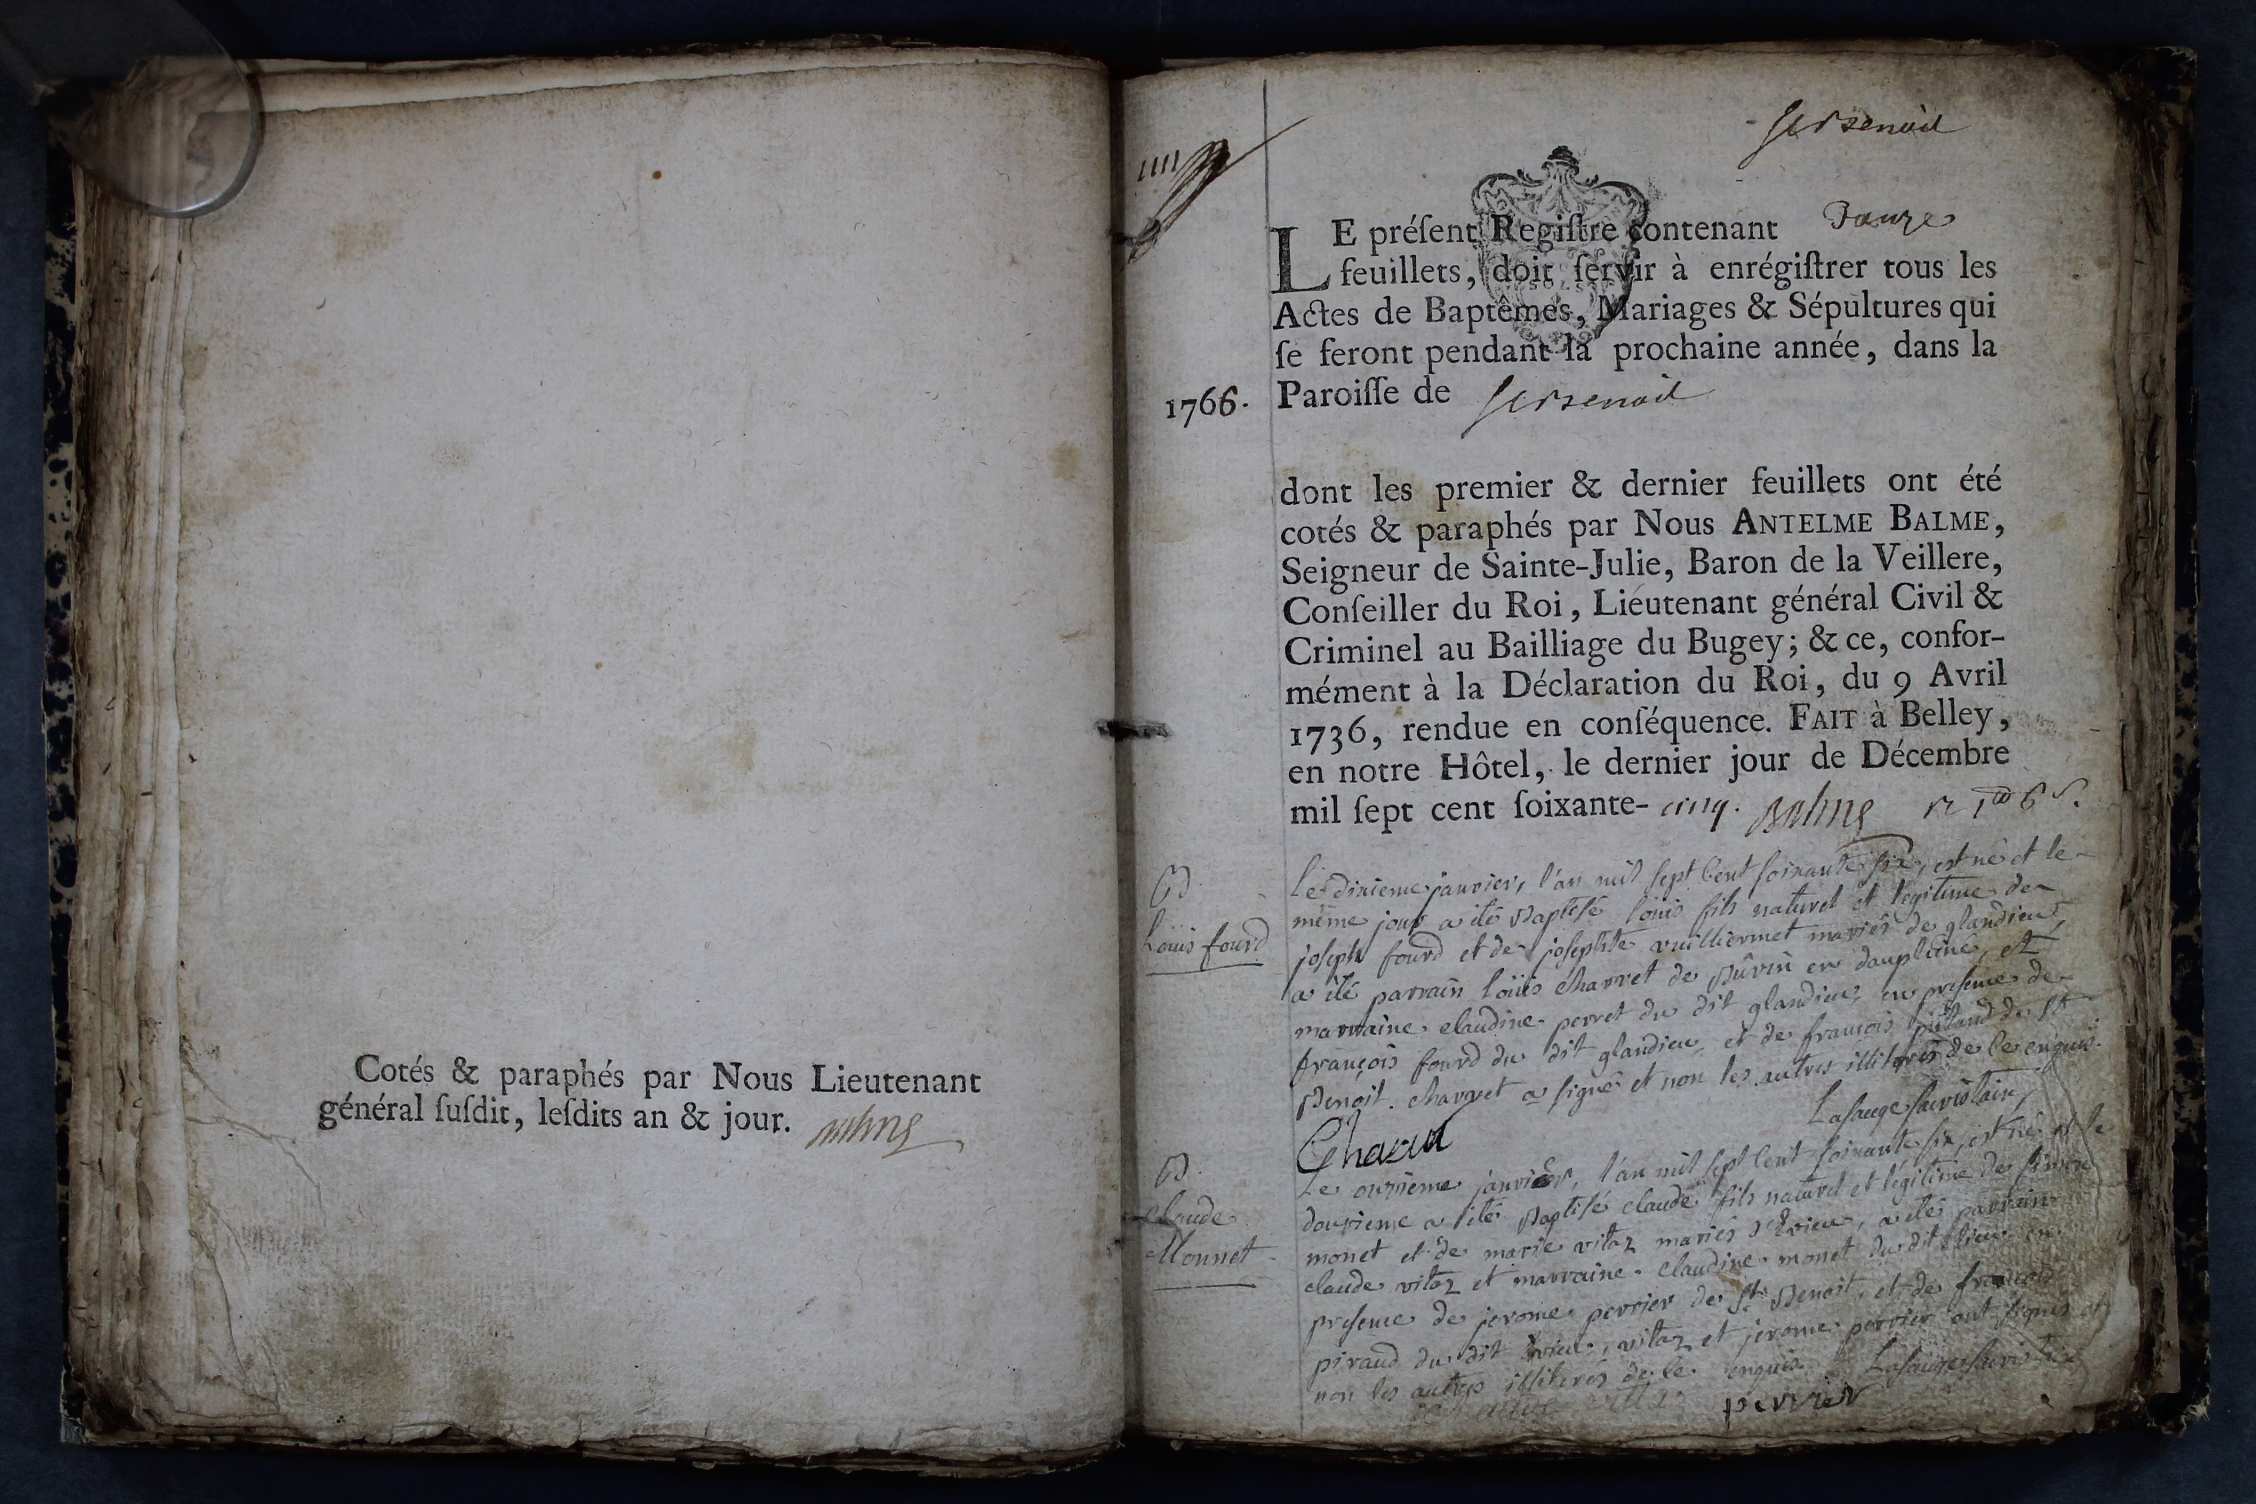 Cotés & paraphés par Nous Lieutenant
général ſuſdit, leſdits an & jour. Balme
1766.
LE préſent Regiſtre contenant Douze
feuillets, doit ſervir à enrégiſtrer tous les
Actes de Baptêmes, Mariages & Sépultures qui
ſe feront pendant la prochaine année, dans la
Paroiſſe de
dont les premier & dernier feuillets ont été
cotés & paraphés par Nous ANTELME BALME,
Seigneur de Sainte-Julie, Baron de la Veillere,
Conſeiller du Roi, Lieutenant général Civil &
Criminel au Bailliage du Bugey; & ce, confor-
mément à la Déclaration du Roi, du 9 Avril
1736, rendue en conſéquence. FAIT à Belley,
en notre Hôtel, le dernier jour de Décembre
mil ſept cent ſoixante- cinq. Balme
B
Loüis fourd
Le dixieme janvier, l'an mil sept Cent soixante six, est né et le
même jour a été Baptisé loüis fils naturel et legitime de
joseph fourd et de josephte vuilliermet mariés de glandieu,
a été parrain loüis Charvet de en dauphiné, et
marraine claudine perret du dit glandieu, en presence de
françois fourd du dit glandieu, et de françois du St
Benoit. Charvet a signé et non les autres illiterés de ce enquis.
Lasauge
Charvet
B
Claude
Monnet
Le onzieme janvier, l'an mil sept Cent soixante six, est né et le
douzieme a été Baptisé claude fils naturel et légitime de
monet et de marie vitoz mariés d'Evieu, a été parrain
claude vitoz et marraine claudine monet du dit lieu en
presence de jerome perrier de St Benoit, et de françois
piraud du dit Evieu, vitoz et jerome perrier ont signés et
non les autres illiterés de ce enquis. Lasauge
perrier